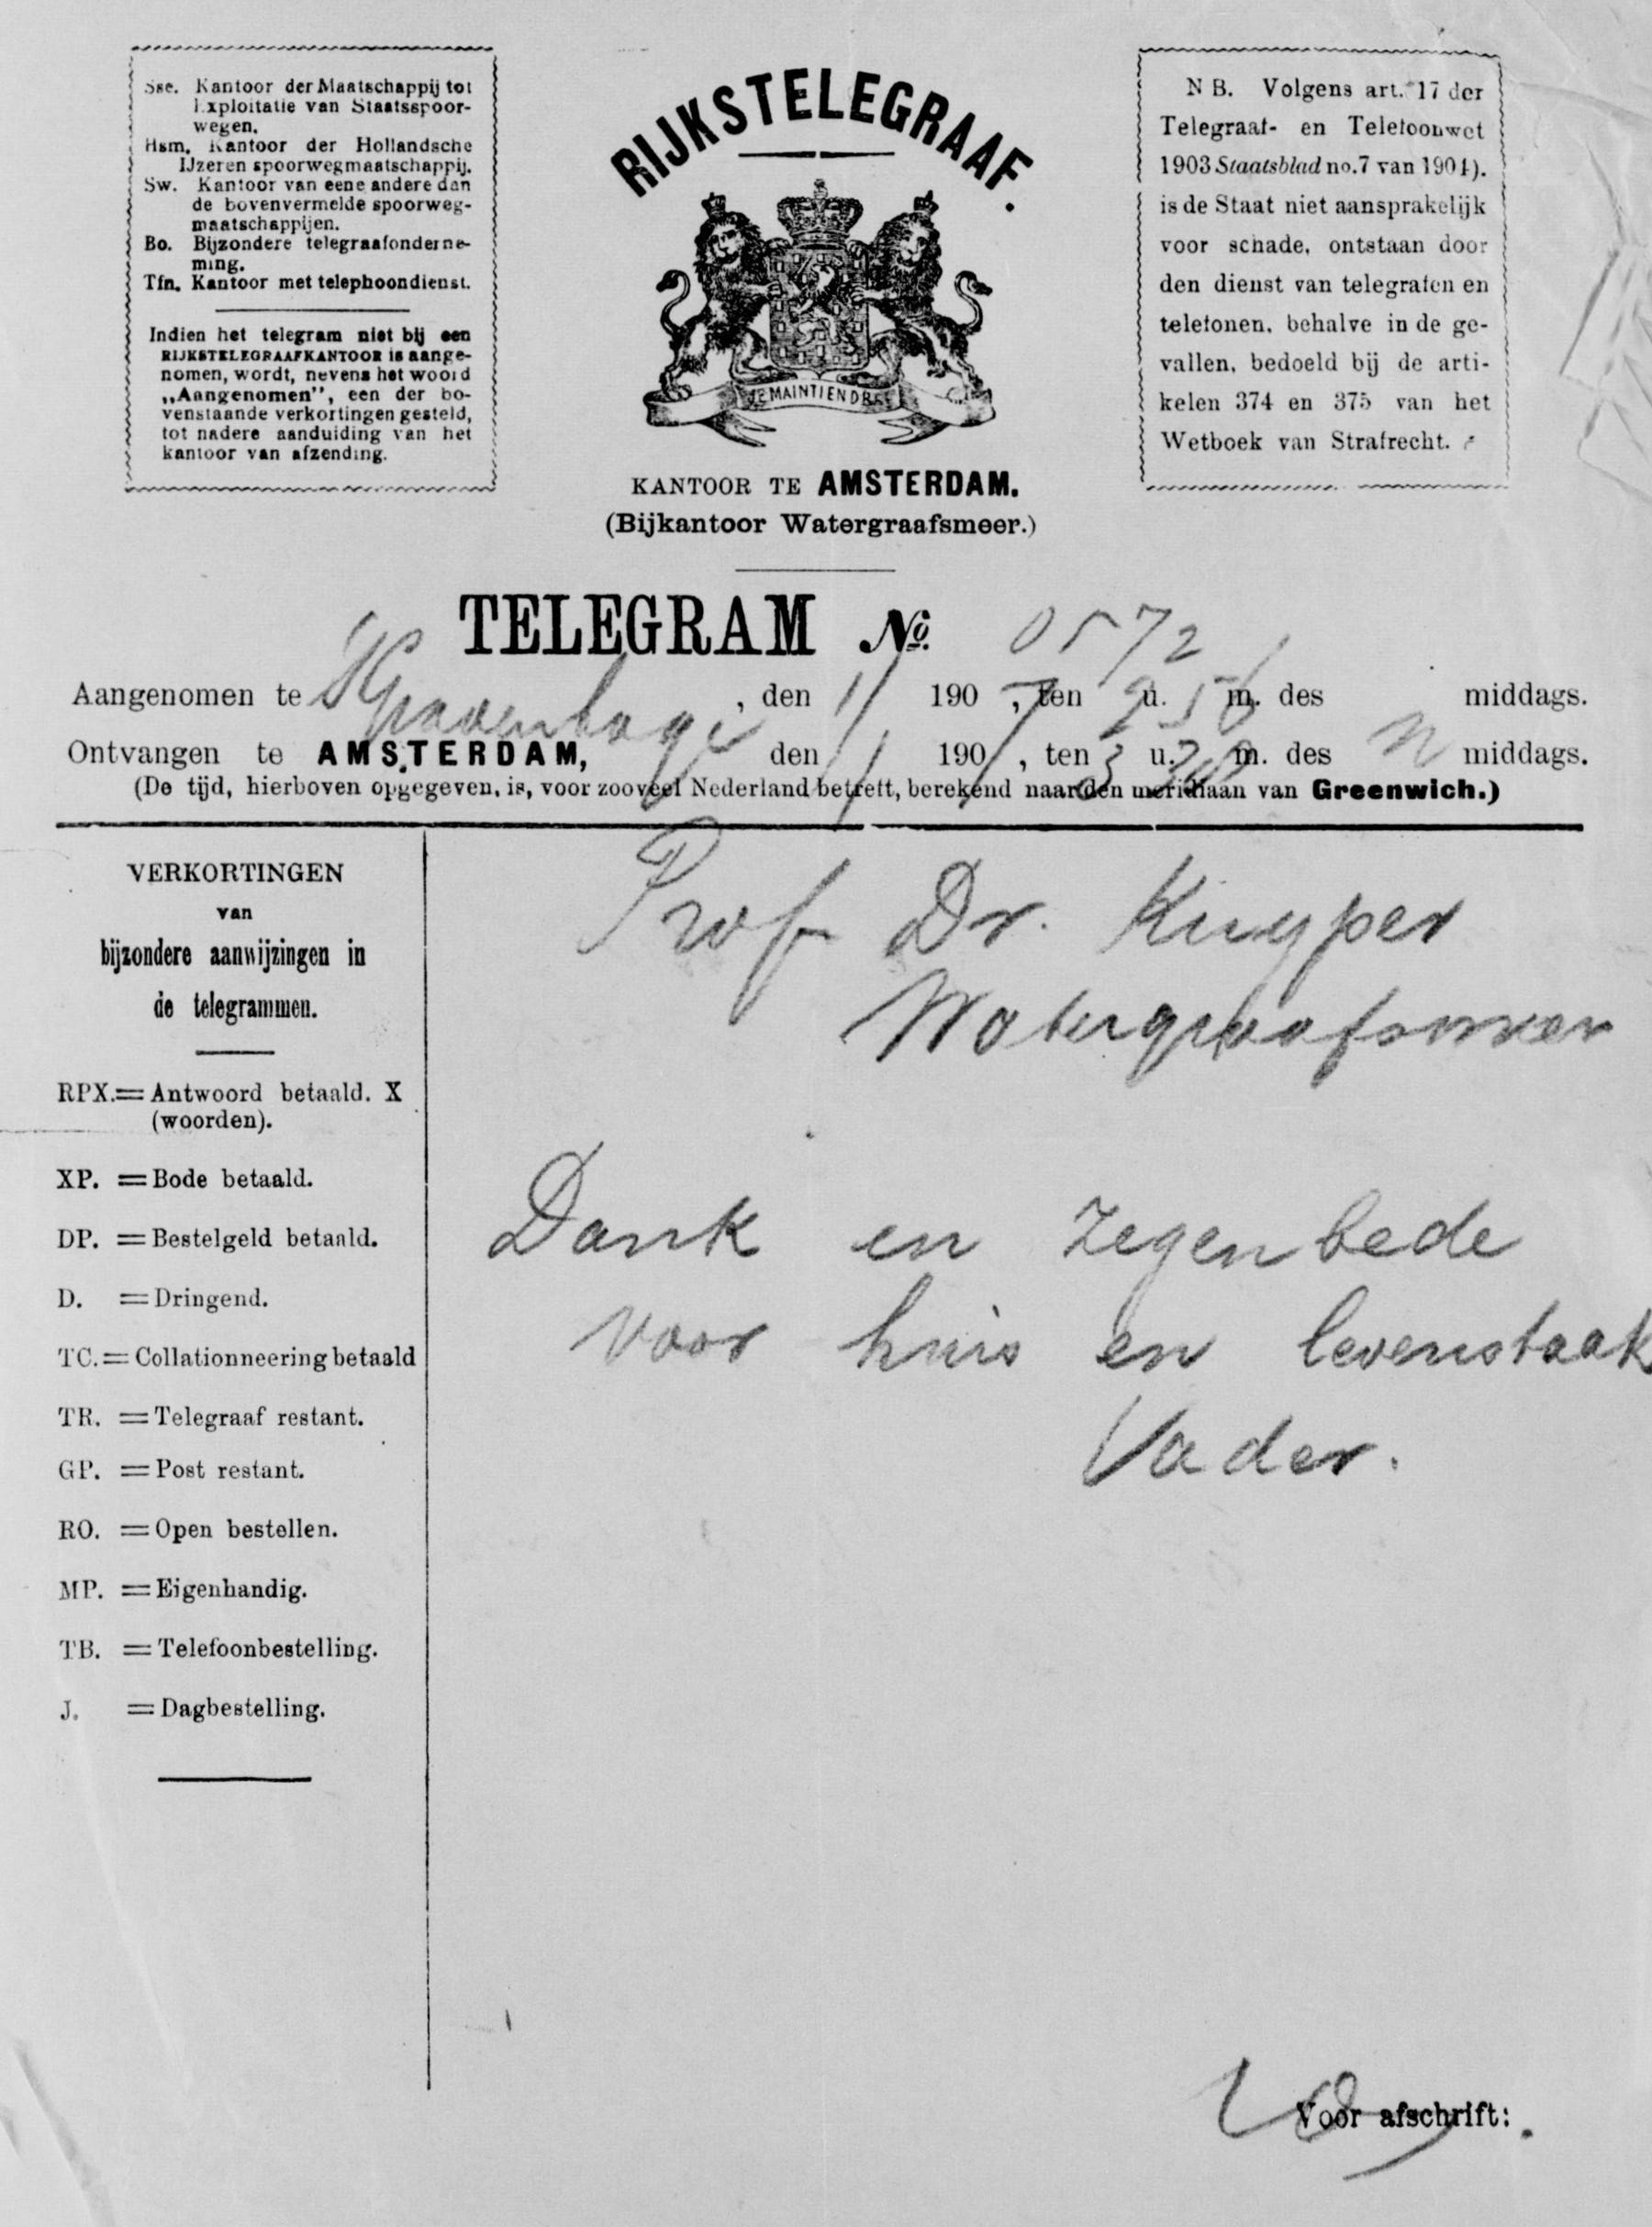 Sse. Kantoor der Maatschappij tot
Exploitatie van Staatsspoor-
wegen.
Hsm. Kantoor der Hollandsche
IJzeren spoorwegmaatschappij.
Sw. Kantoor van eene andere dan
de bovenvermelde spoorweg-
maatschappijen.
Bo. Bijzondere telegraafonderne-
ming.
Tfn. Kantoor met telephoondienst.
Indien het telegram niet bij een
RIJKSTELEGRAAFKANTOOR is aange-
nomen, wordt, nevens het woord
„Aangenomen”, een der bo-
venstaande verkortingen gesteld,
tot nadere aanduiding van het
kantoor van afzending.
RIJKSTELEGRAAF.
JE MAINTIENDRAI
KANTOOR TE AMSTERDAM.
(Bijkantoor Watergraafsmeer.)
N B. Volgens art. 17 der
Telegraaf- en Telefoonwet
1903 Staatsblad no. 7 van 1904).
is de Staat niet aansprakelijk
voor schade, ontstaan door
den dienst van telegrafen en
telefonen, behalve in de ge-
vallen, bedoeld bij de arti-
kelen 374 en 375 van het
Wetboek van Strafrecht.
TELEGRAM No. 0572
Aangenomen te SGravenhage, den 1/1 1907, ten 2 u. 56 m. des middags.
Ontvangen te AMSTERDAM, den 1/1 1907, ten 3 u. m. des N middags.
(De tijd, hierboven opgegeven, is, voor zooveel Nederland betreft, berekend naar den meridiaan van Greenwich.)
VERKORTINGEN
van
bijzondere aanwijzingen in
de telegrammen.
RPX. = Antwoord betaald. X
(woorden).
XP. = Bode betaald.
DP. = Bestelgeld betaald.
D. = Dringend.
TC. = Collationneering betaald
TR. = Telegraaf restant.
GP. = Post restant.
RO. = Open bestellen.
MP. = Eigenhandig.
TB. = Telefoonbestelling.
J. = Dagbestelling.
Prof Dr. Kuyper
Watergraafsmeer
Dank en zegenbede
voor huis en levenstaak
Vader.
Voor afschrift: